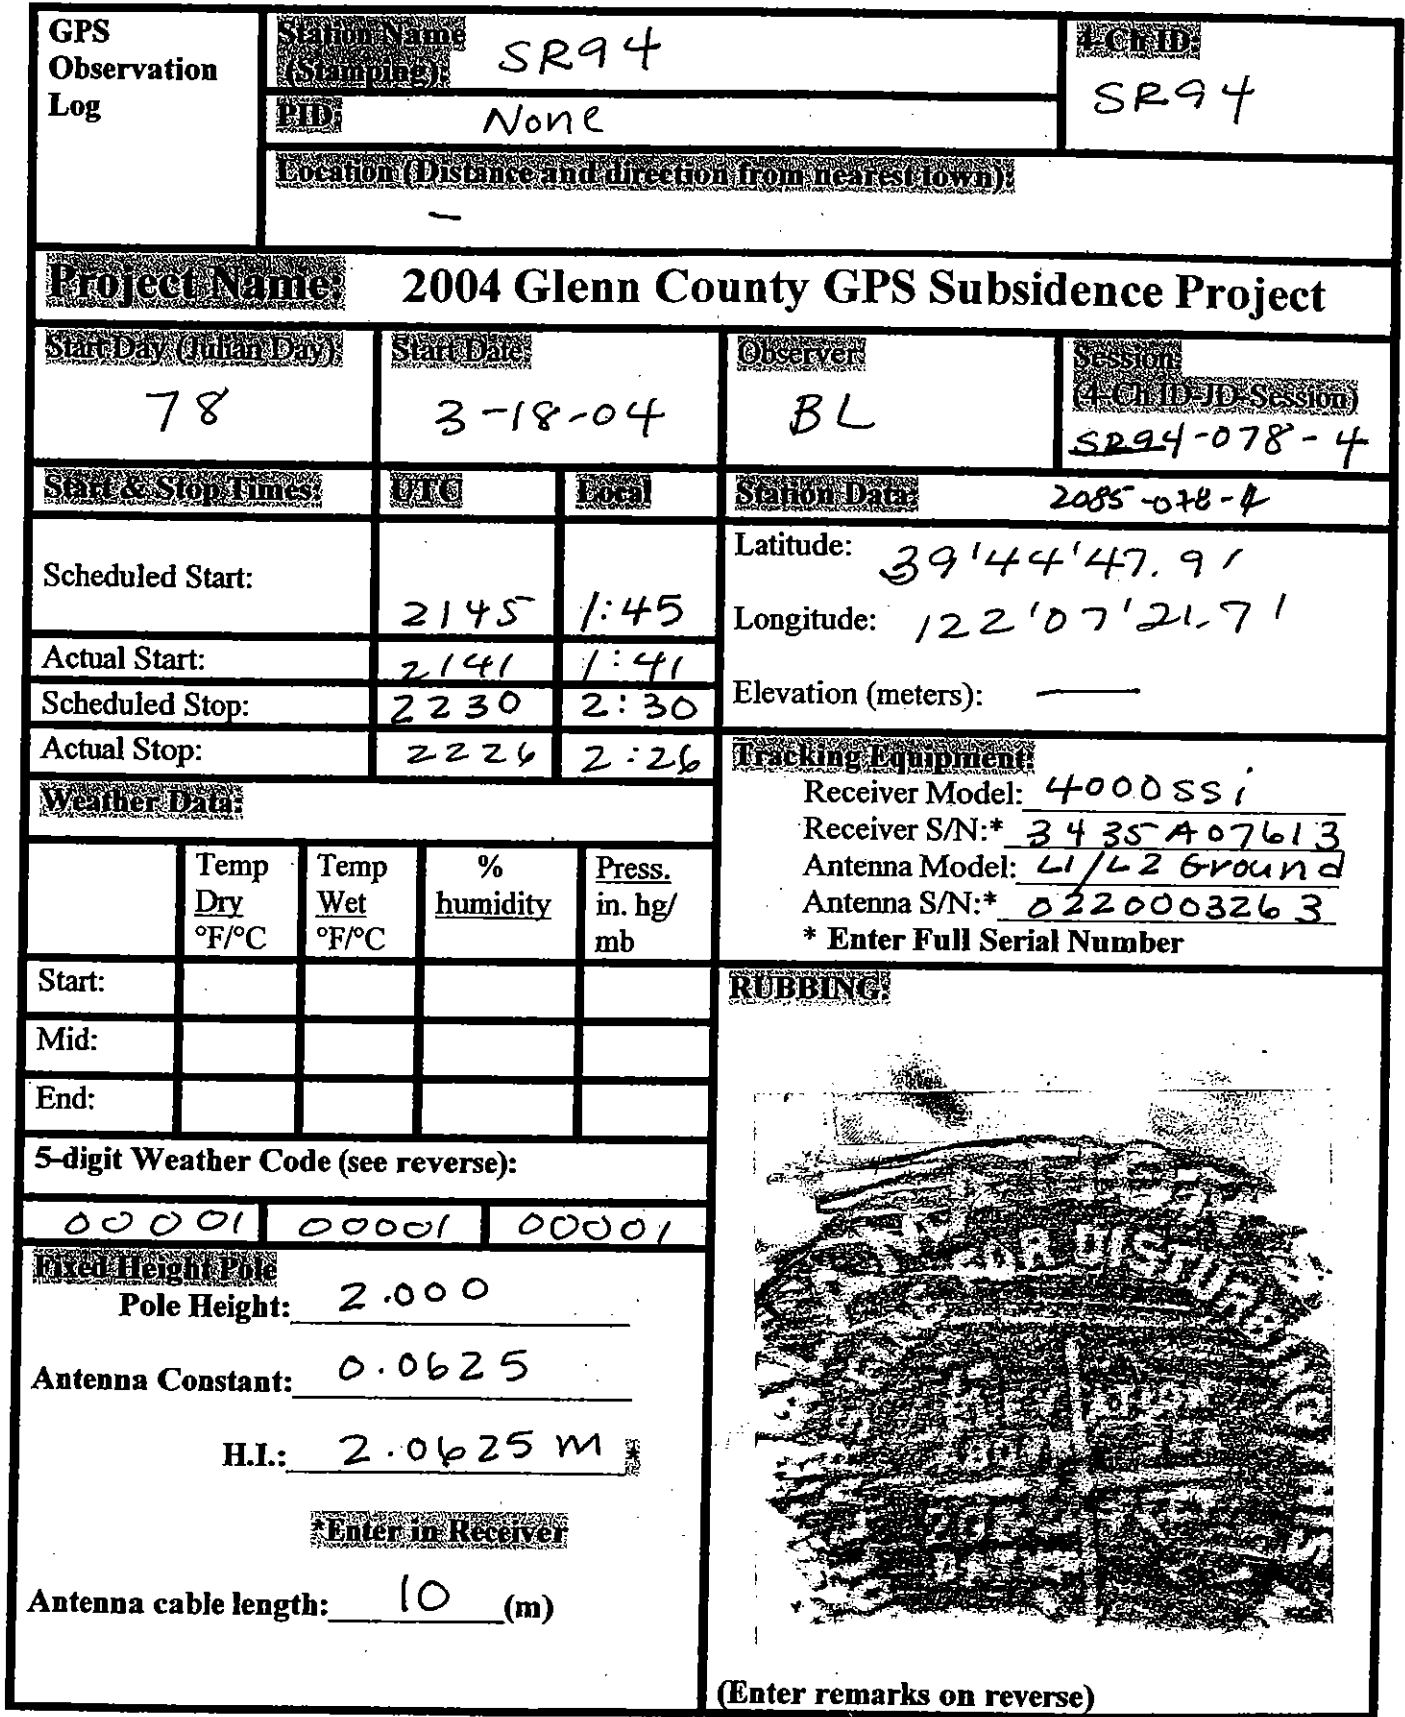 GPS
Observation
Log
Station Name
(Stamping): SR94
4-Ch ID:
SR94
PID: None
Location (Distance and direction from nearest town):
—
Project Name: 2004 Glenn County GPS Subsidence Project
Start Day (Julian Day):
78
Start Date:
3-18-04
Observer
BL
Session:
(4-Ch ID-JD-Session)
SR94-078-4
Start & Stop Times: UTC Local
Station Data: 2085-078-4
Scheduled Start: 2145 1:45
Actual Start: 2141 1:41
Scheduled Stop: 2230 2:30
Actual Stop: 2226 2:26
Latitude: 39'44'47.9'
Longitude: 122'07'21.7'
Elevation (meters): —
Tracking Equipment:
Receiver Model: 4000SSi
Receiver S/N:* 3435A07613
Antenna Model: L1/L2 Ground
Antenna S/N:* 0220003263
* Enter Full Serial Number
Weather Data:
Temp Dry °F/°C
Temp Wet °F/°C
% humidity
Press. in. hg/ mb
Start:
Mid:
End:
5-digit Weather Code (see reverse):
00001 00001 00001
Fixed Height Pole
Pole Height: 2.000
Antenna Constant: 0.0625
H.I.: 2.0625 m *
*Enter in Receiver
Antenna cable length: 10 (m)
RUBBING:
OR DISTURB
(Enter remarks on reverse)